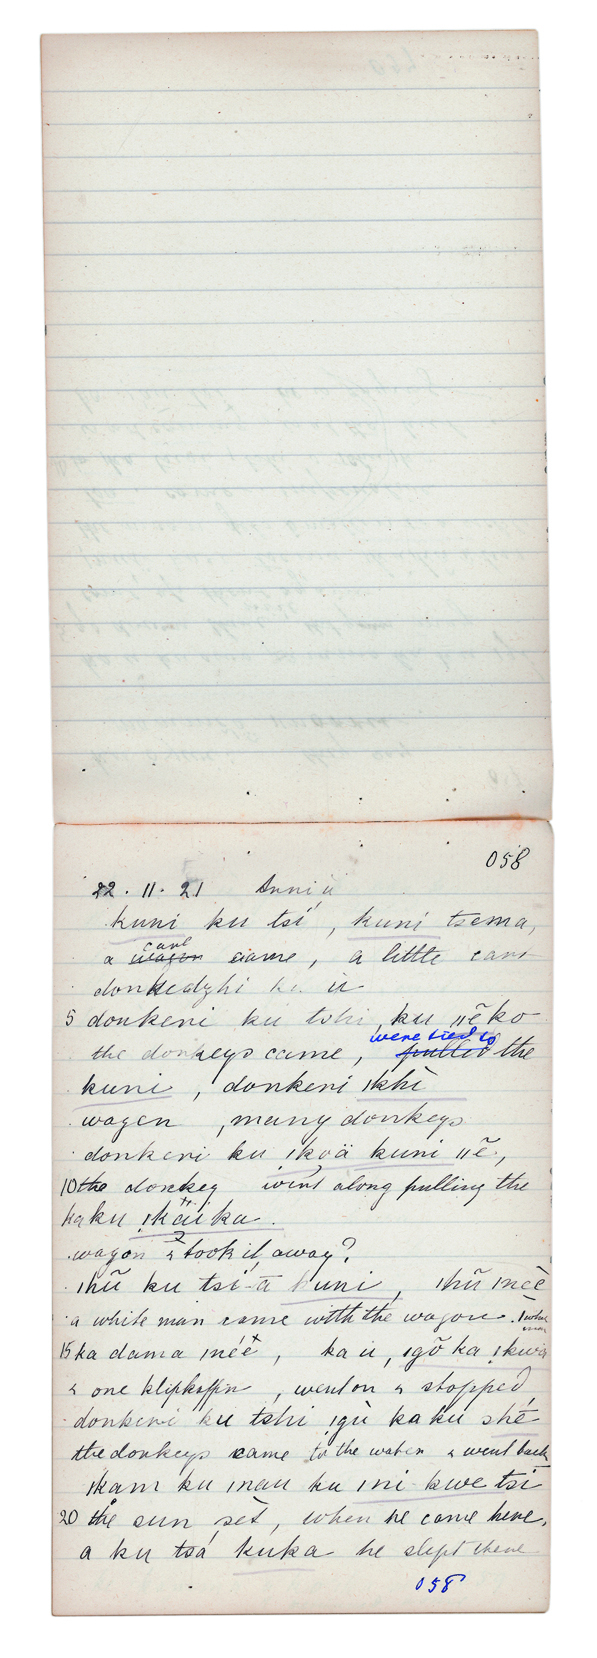 058
22.11.21 Annii
kuni ku tsí, kuni tsema,
cart
a wagon came, a little cart
donkedzhi ku u
5 donkeni ku tshi, ku ǁẽko
were tied to
the donkeys came, pulled the
kuni, donkeni ǀkhì
wagen, many donkeys
donkeni ku ǀkoä kuni ǁẽ,
10 the donkey went along pulling the
ka ku ǀkāi ka.
wagon & took it away?
ǀhũ ku tsí-ā kuni, ǀhũ
a white man came with the wagon.
15 ka dama ka u, ka
& one klipkaffin, went on & stopped,
donkeni ku tshi ǃgù ka ku shé
the donkeys came to the water & went back
ǀkam ku ǀnau ku ǀni kwe tsí
20 the sun set, when he came here,
a ku tsá kuka he slept there
058